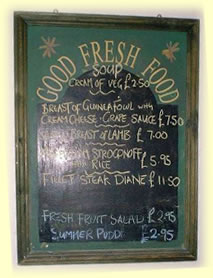 GOOD FRESH FOOD
SOUP
CREAM OF VEG £2.50
BREAST OF GUINEAFOWL WITH
CREAM CHEESE + GRAPE SAUCE £7.50
BREAST OF LAMB £ 7.00
STROGONOFF
RICE £5.95
FILLET STEAK DIANE £11.50
FRESH FRUIT SALAD £2.95
SUMMER PUDD £2.95